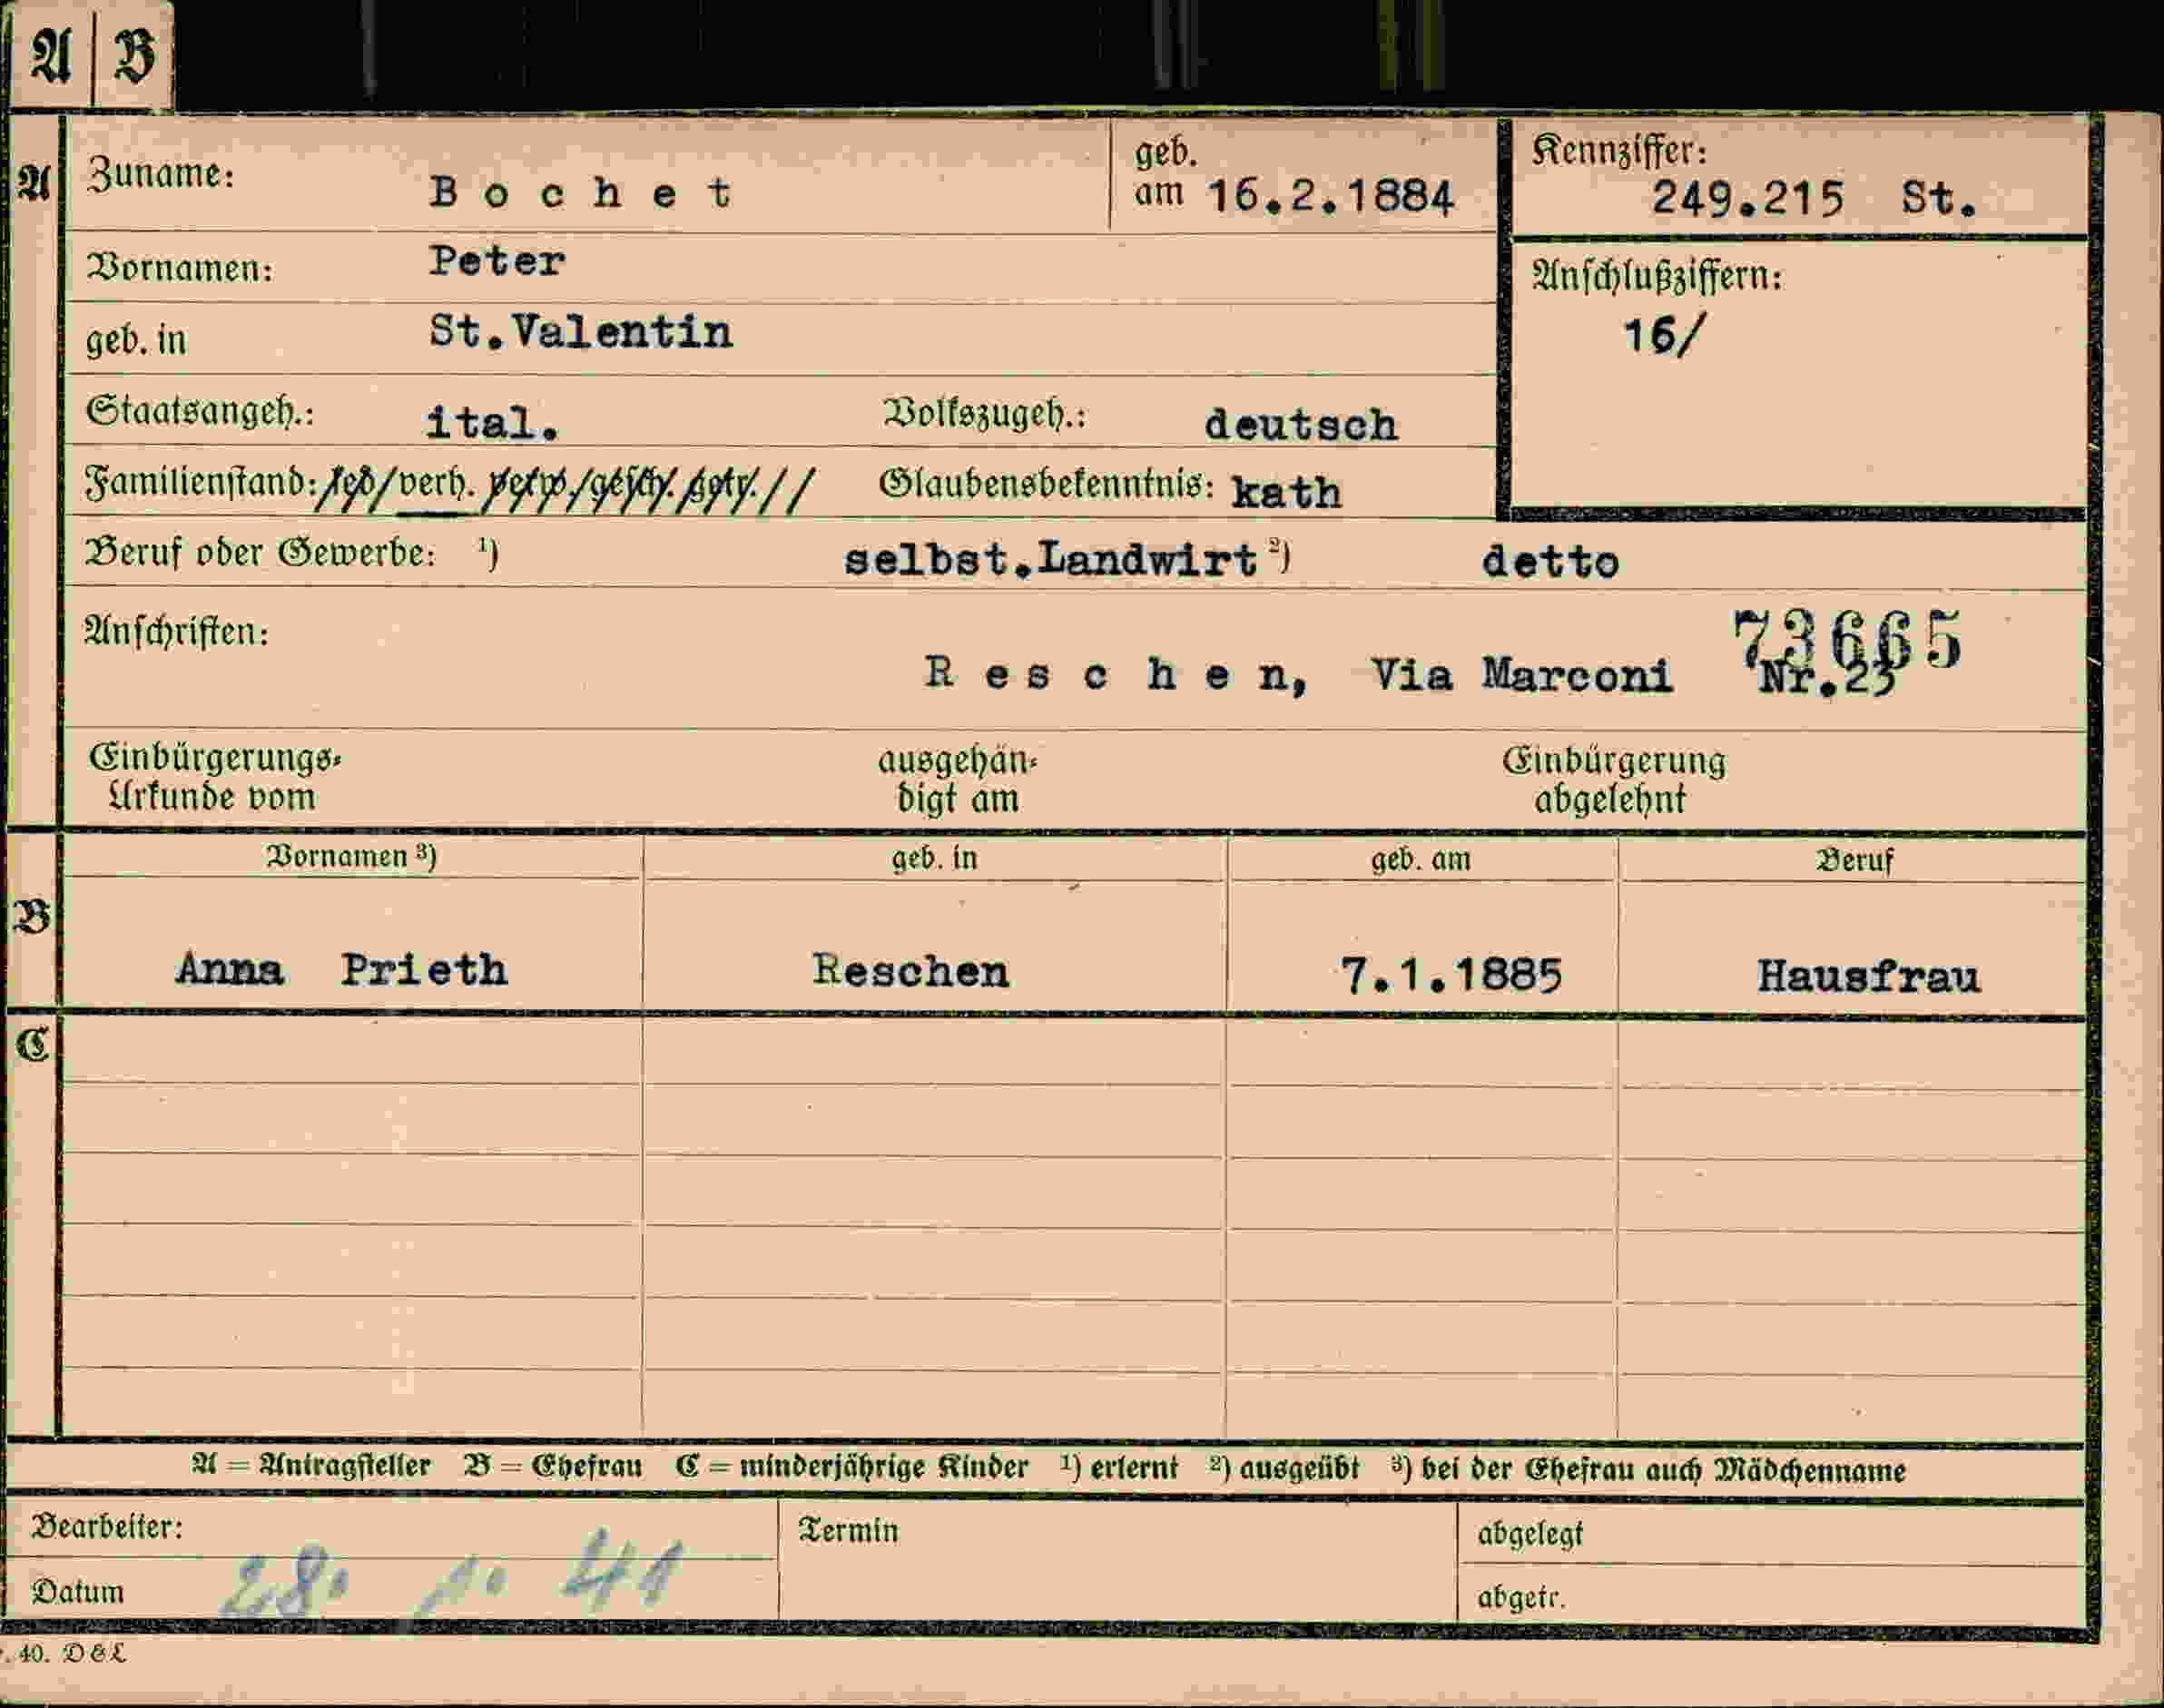 A | B
A
Zuname: Bochet geb. am 16.2.1884
Kennziffer: 249.215 St.
Vornamen: Peter
Anschlußziffern: 16/
geb. in St.Valentin
Staatsangeh.: ital. Volkszugeh.: deutsch
Familienstand: led/verh. verw/gesch. getr.// Glaubensbekenntnis: kath
Beruf oder Gewerbe: ¹) selbst.Landwirt ²) detto
73665
Anschriften: Reschen, Via Marconi Nr.23
Einbürgerungs- Urkunde vom
ausgehän- digt am
Einbürgerung abgelehnt
Vornamen ³) geb. in geb. am Beruf
B
Anna Prieth Reschen 7.1.1885 Hausfrau
C
A = Antragsteller B = Ehefrau C = minderjährige Kinder ¹) erlernt ²) ausgeübt ³) bei der Ehefrau auch Mädchenname
Bearbeiter: Termin abgelegt
Datum 28. 1. 41 abgetr.
. 40. D & L